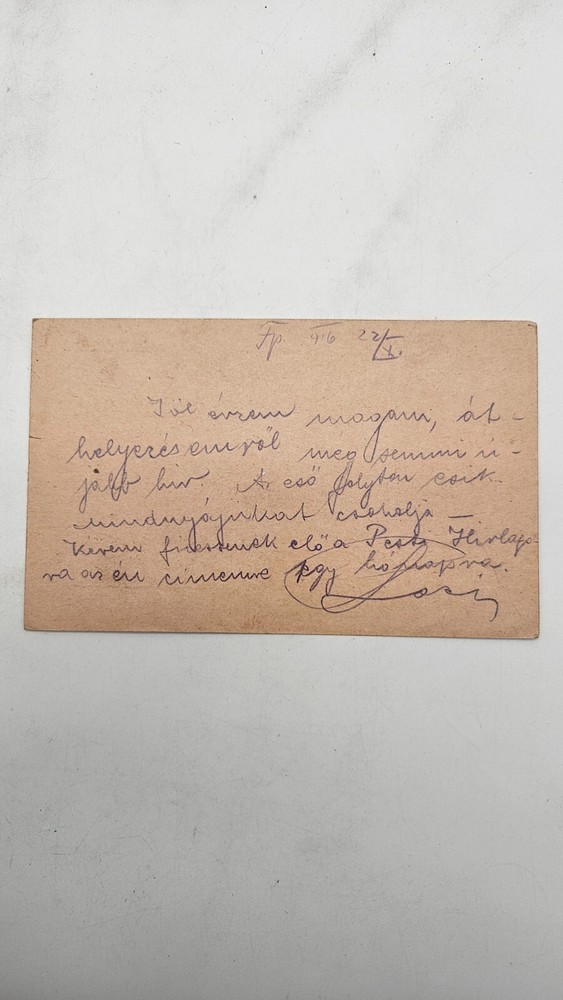 Fp. 46 22/X.
Jól érzem magam, át-
helyezésemről meg semmi u-
jabb hir. Az eső folyton esik.
mindnyájukat csokolja —
Kérem fizessenek elő a Pesti Hirlap-
ra az én cimemre egy hónapra.
Laci